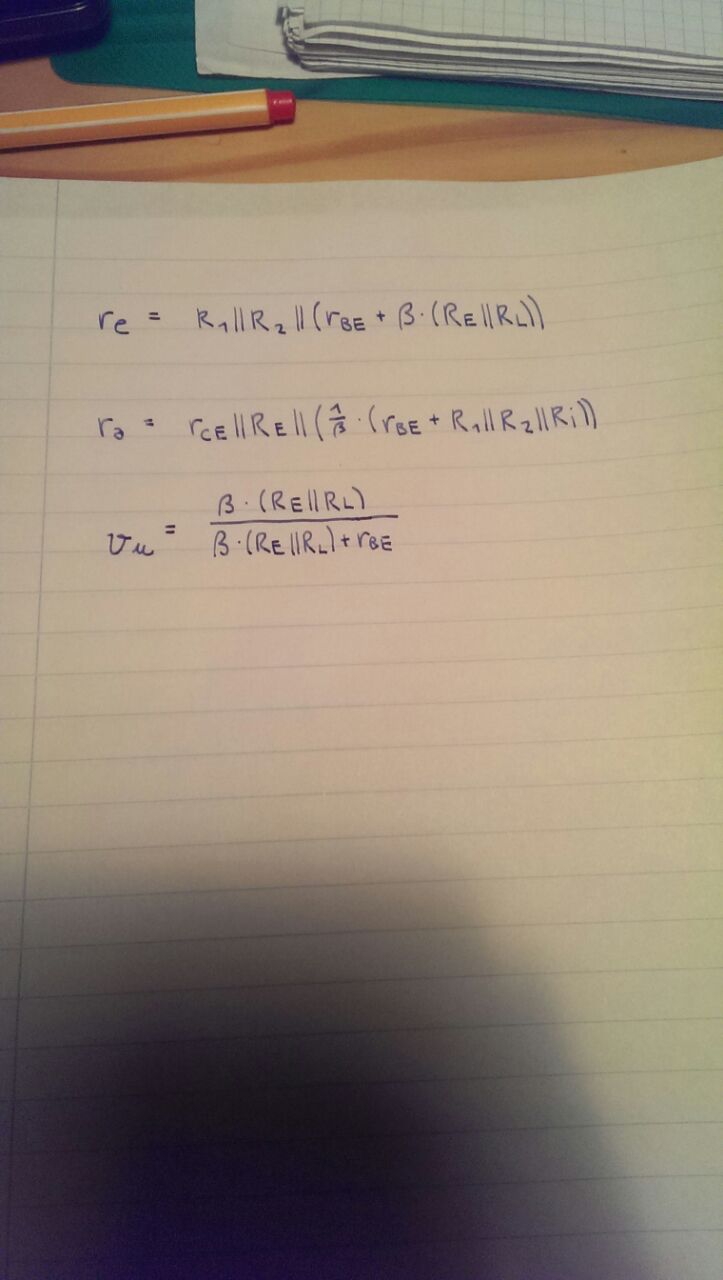 re = R₁||R₂||(rBE + β·(RE||RL))
ra = rCE||RE||(1/β·(rBE + R₁||R₂||Ri))
vu = β·(RE||RL) / β·(RE||RL)+rBE